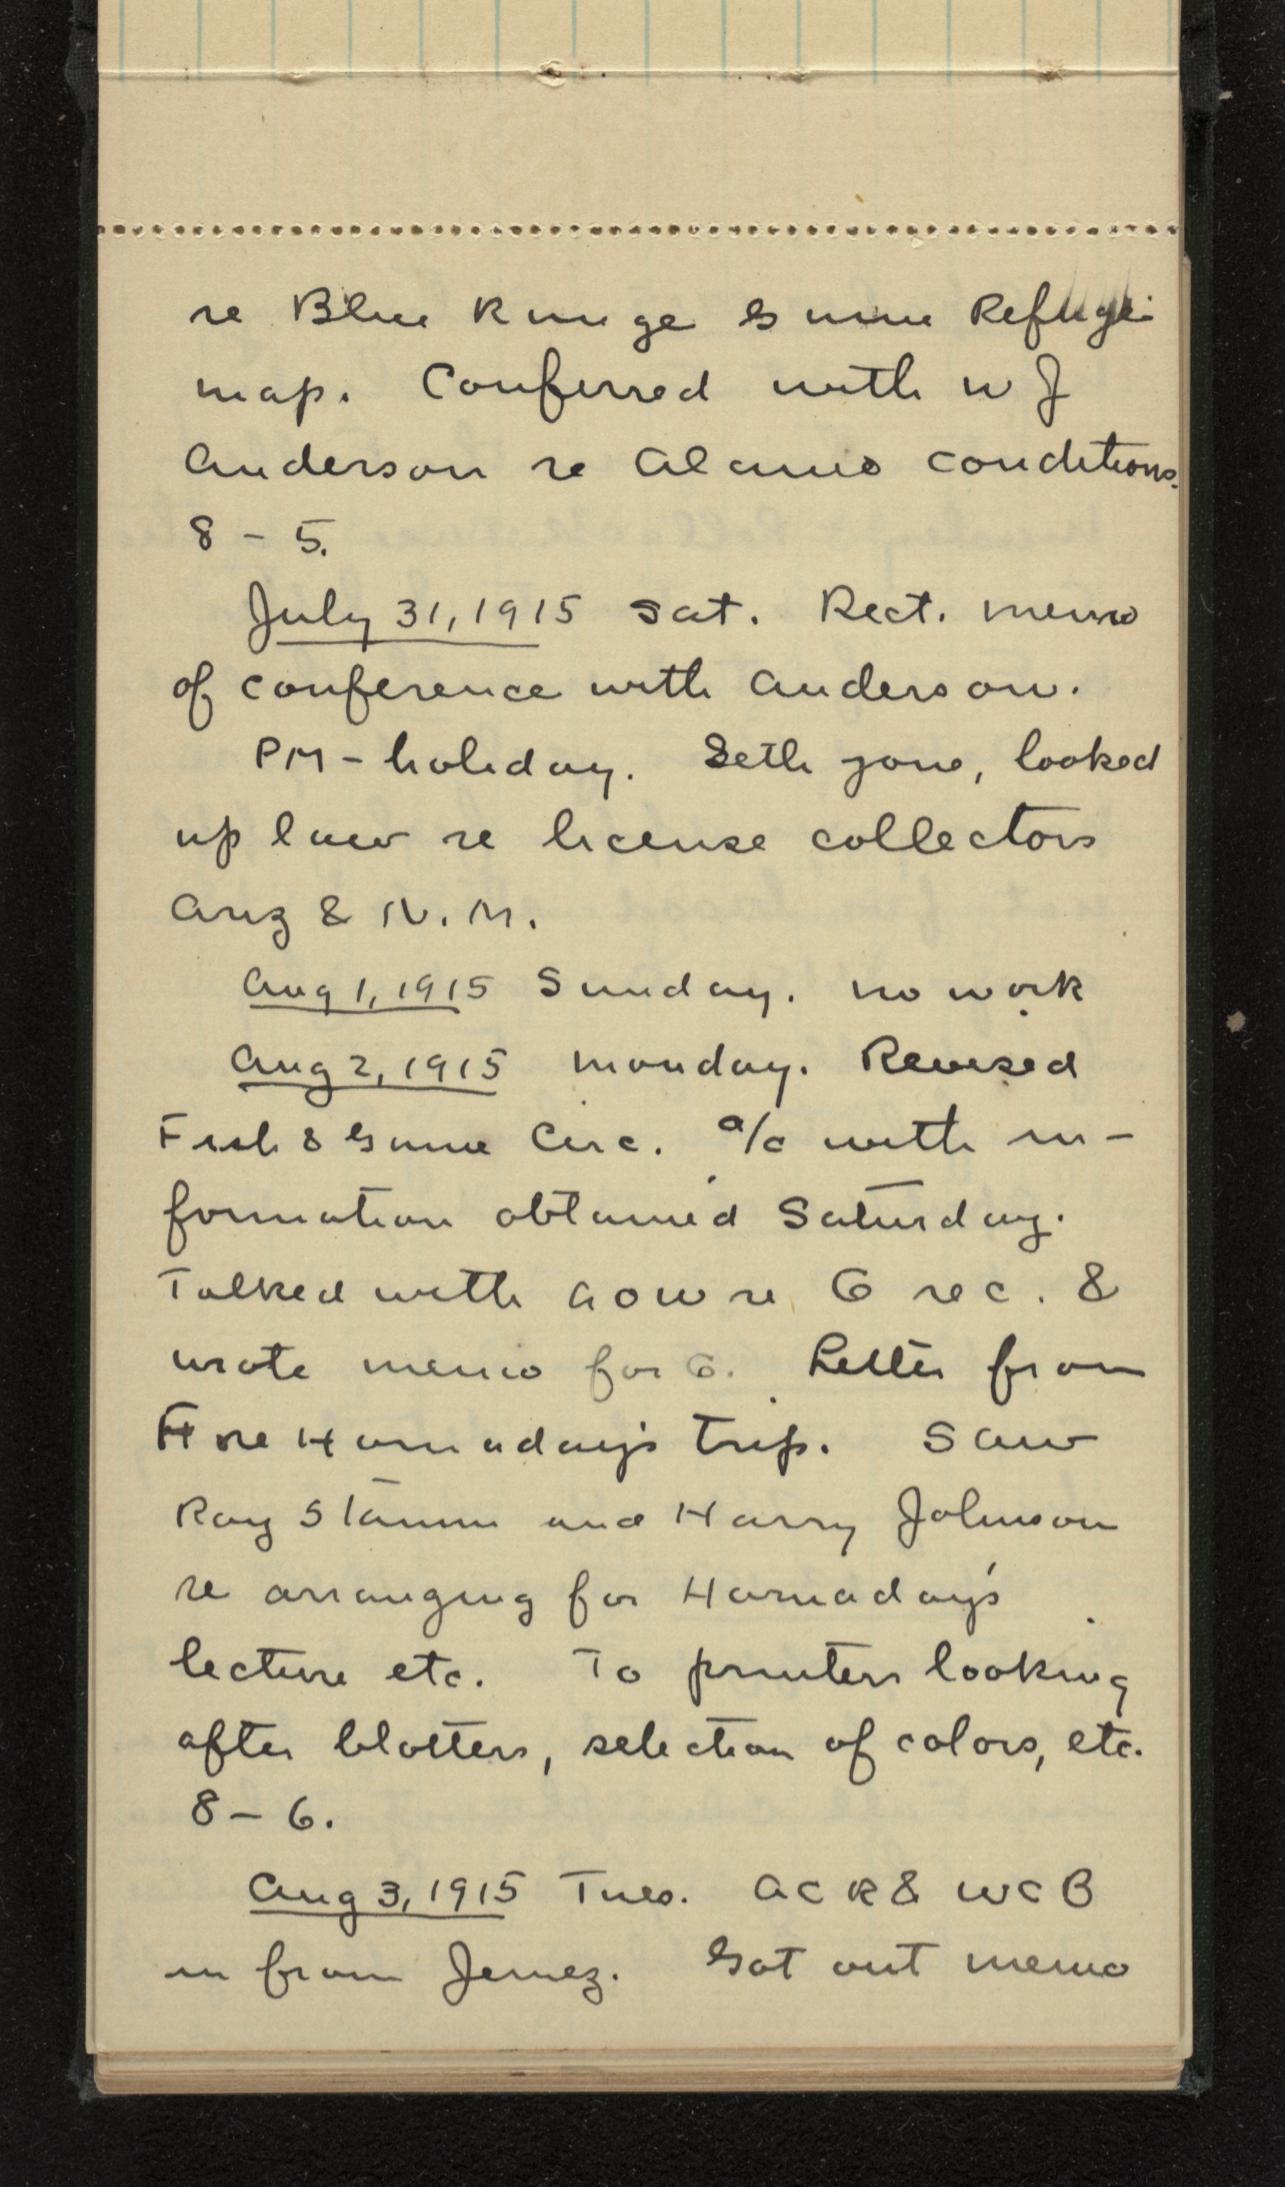 re Blue Range Game Refuge
map. Conferred with W J
Anderson re Alamo conditions.
8 - 5.
July 31, 1915 Sat. Rect. memo
of conference with Anderson.
PM - holiday. Seth gone, looked
up law re license collectors
Ariz & N. M.
Aug 1, 1915 Sunday. No work
Aug 2, 1915 Monday. Revised
Fish & Game Circ. a/c with in-
formation obtained Saturday.
Talked with AOW re G rec. &
wrote memo for G. Letter from
F re Hornaday's trip. Saw
Ray Stamm and Harry Johnson
re arranging for Hornaday's
lecture etc. To printers looking
after blotters, selection of colors, etc.
8 - 6.
Aug 3, 1915 Tues. ACR & WCB
in from Jemez. Got out memo